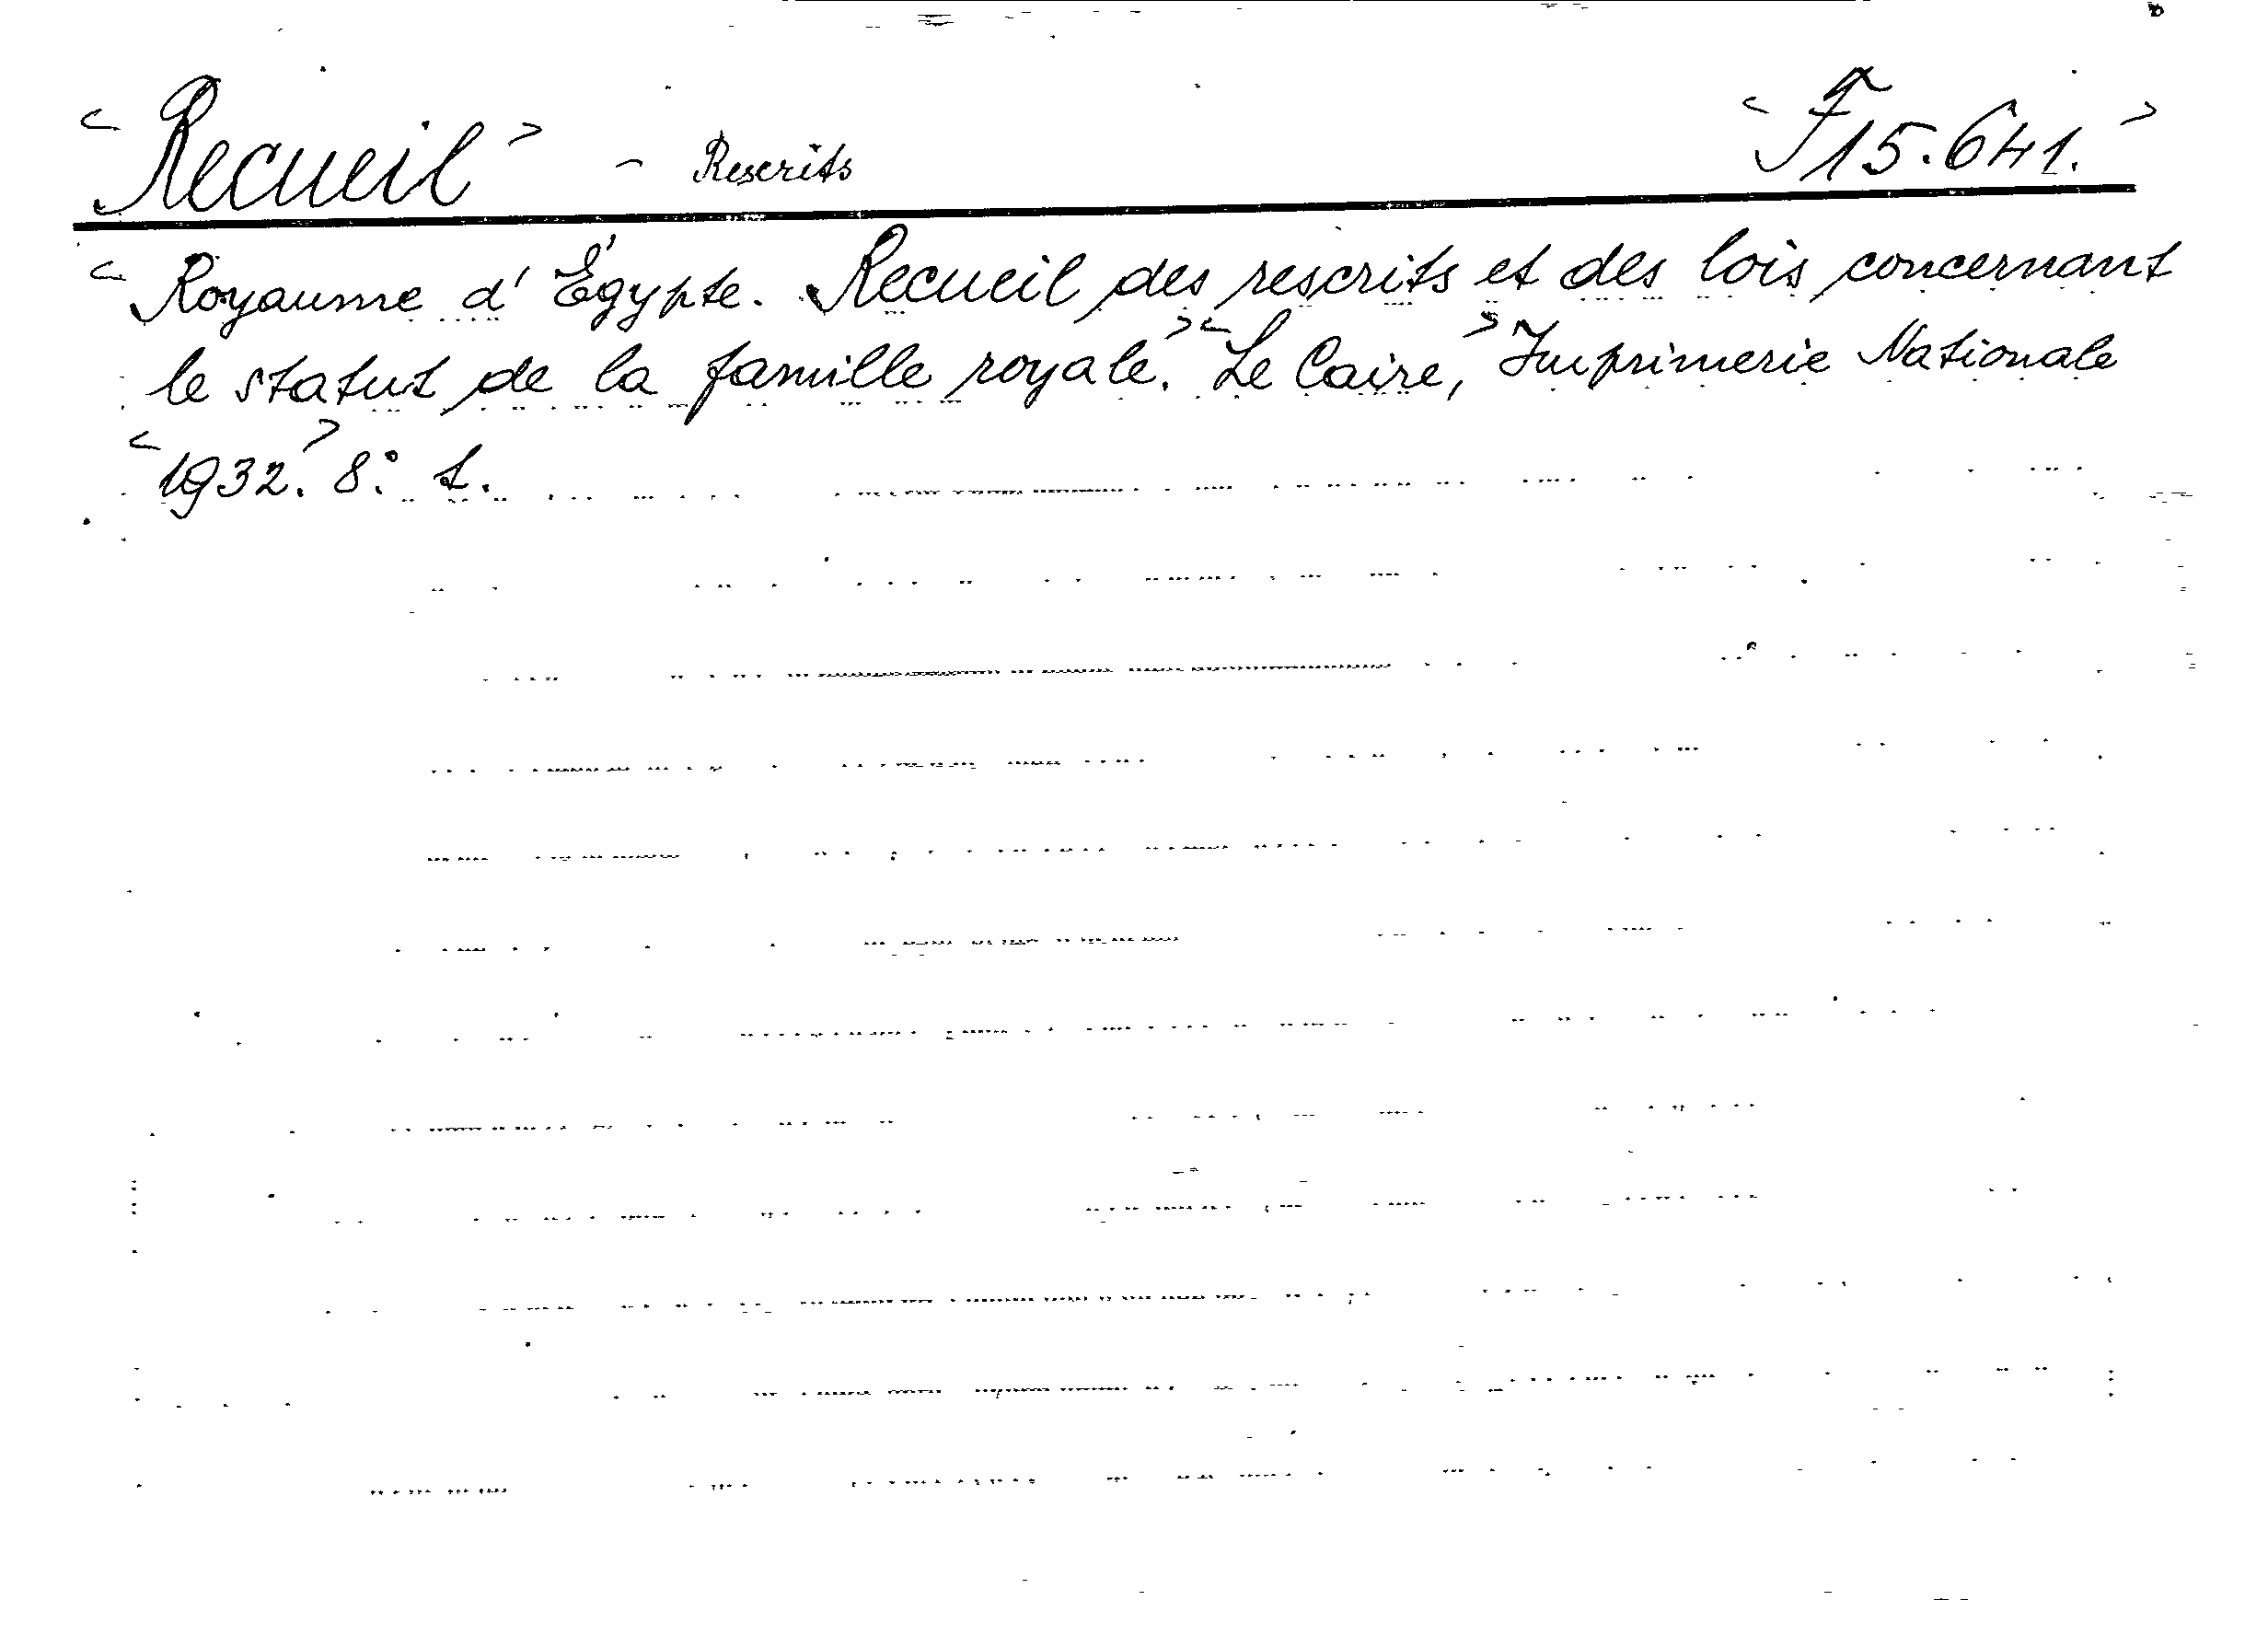 <Recueil> - Rescrits <F15.641.>
<Royaume d'Égypte. Recueil des rescrits et des lois concernant
le statut de la famille royale.> <Le Caire,> Imprimerie Nationale
<1932.> 8.° t.